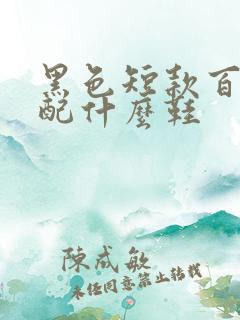 黑色短款百
配什麼鞋
陳咸敏
未经同意禁止转载